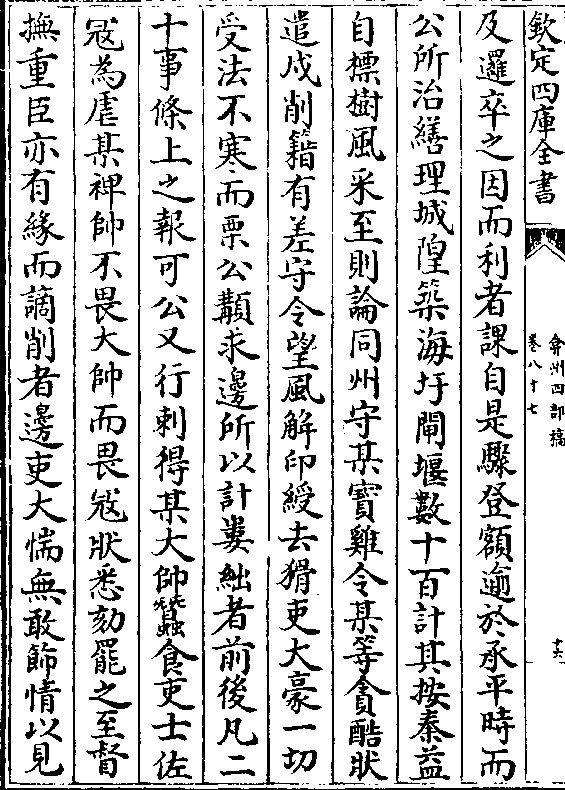 欽定四庫全書
弇州四部稿
卷八十七
十六
及邏卒之因而利者課自是驟登額逾於承平時而
公所治繕理城隍築海圩閘堰數十百計其按秦益
自摽樹風采至則論同州守某寳雞令某等貪酷狀
遣戍削籍有差守令望風解印綬去猾吏大豪一切
受法不寒而栗公顯求邊所以計婁絀者前後凡二
十事條上之報可公又行剌得某大帥蠶食吏士佐
㓂為虐某裨帥不畏大帥而畏㓂狀悉劾罷之至督
撫重臣亦有緣而謫削者邊吏大惴無敢飾情以見